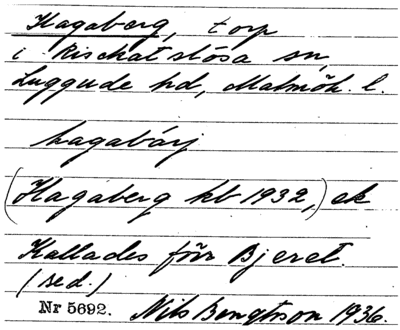 Hagaberg, torp
i Risekatslösa sn,
Luggude hd, Malmöh. l.
hagabárj
(Hagaberg kb 1932,) ek
Kallades förr Bjeret.
(sed.)
Nr 5692. Nils Bengtsson 1936.